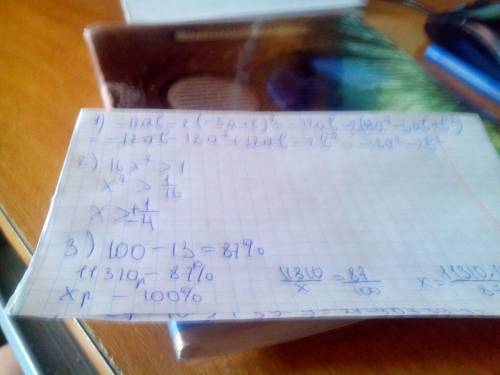 1) -12ab - 2(-3a+b)² = -12ab - 2(9a² - 6ab + b²)
= -12ab - 18a² + 12ab - 2b² = -18a² - 2b²
2) 16x² > 1
x² > 1/16
x > ±1/4
3) 100 - 13 = 87%
11310р - 87%
xр - 100%
11310/x = 87/100
x =